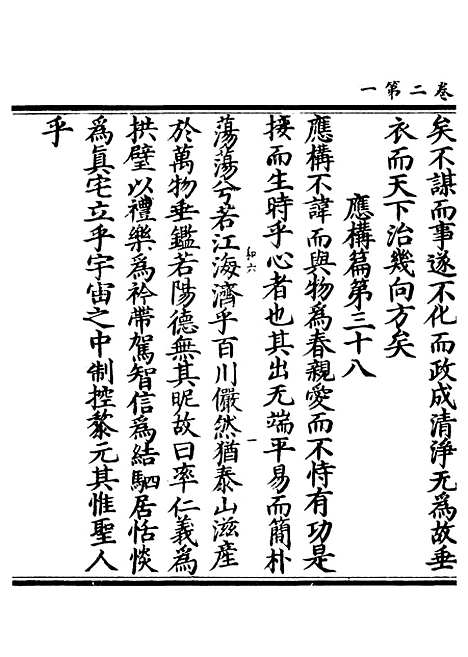 卷二第一
矣不謀而事遂不化而政成清淨无為故垂
衣而天下治幾向方矣
應構篇第三十八
應構不諱而與物為春親愛而不恃有功是
接而生時乎心者也其出无端平易而簡朴
蕩蕩兮若江海濟乎百川儼然猶泰山滋産
於萬物垂鑑若陽德無其昵故曰率仁義為
拱璧以禮樂為衿帶駕智信為結駟居恬惔
為眞宅立乎宇宙之中制控黎元其惟聖人
乎
和六
一